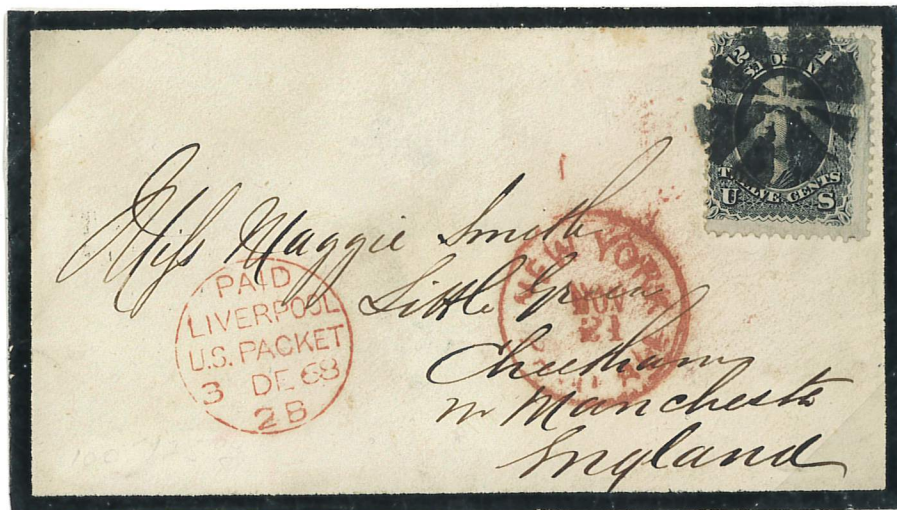 TWELVE CENTS
U S
Miss Maggie Smith
Little Green
Cheetham
nr Manchester
England
PAID
LIVERPOOL
U.S. PACKET
3 DE 68
2B
NEW YORK
NOV
21